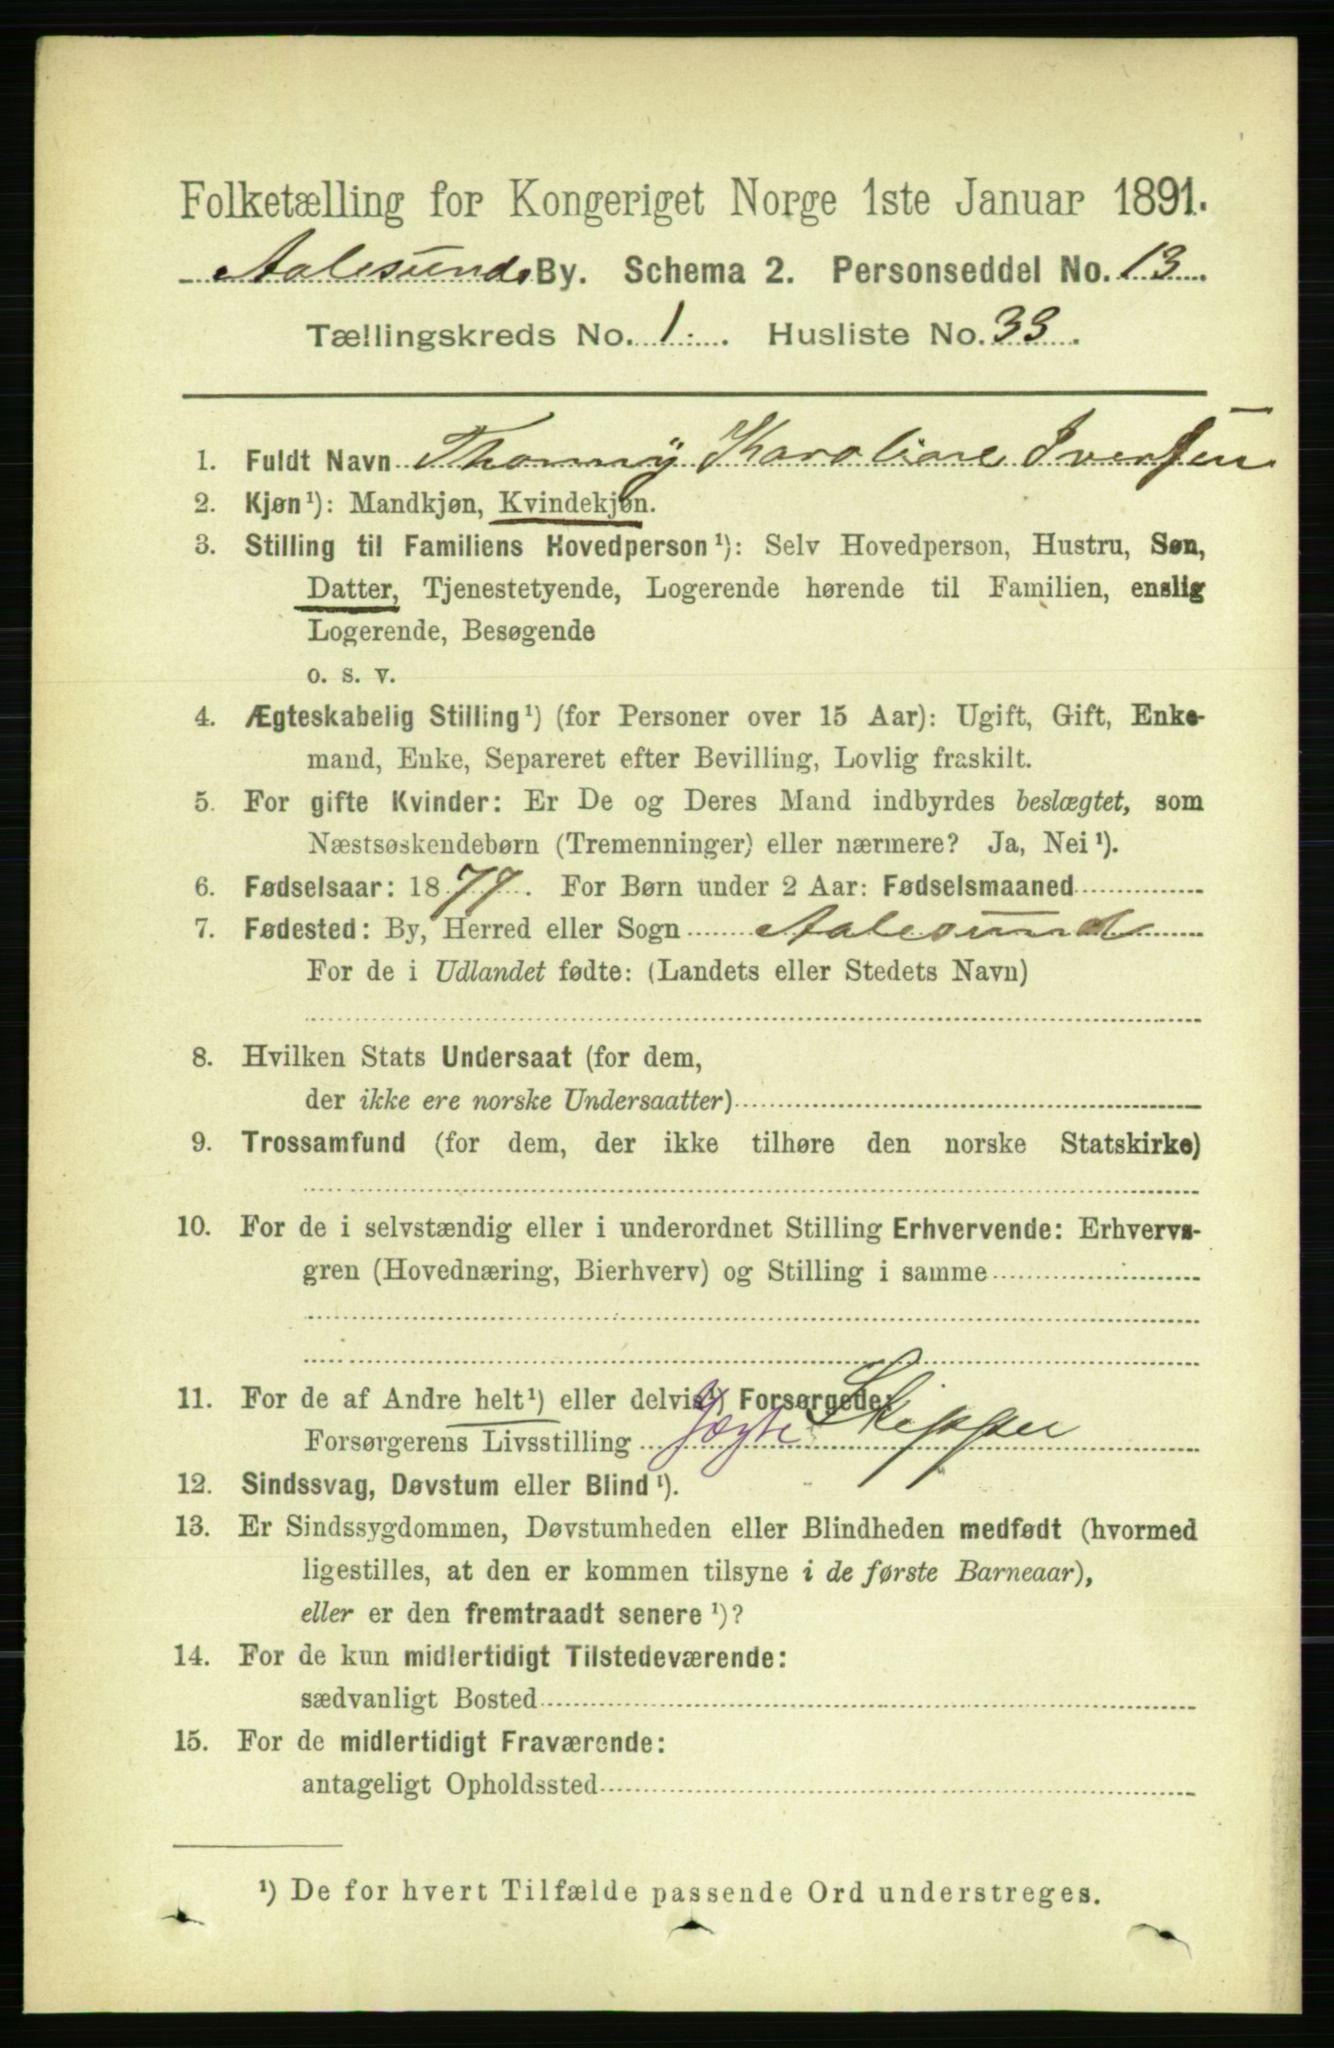 Folketælling for Kongeriget Norge 1ste Januar 1891.
Aalesunds By. Schema 2. Personseddel No. 13
Tællingskreds No. 1. Husliste No. 33.
1. Fuldt Navn Thonny Karoline Iversen
2. Kjøn ¹): Mandkjøn, Kvindekjøn.
3. Stilling til Familiens Hovedperson ¹): Selv Hovedperson, Hustru, Søn,
Datter, Tjenestetyende, Logerende hørende til Familien, enslig
Logerende, Besøgende
o. s. v.
4. Ægteskabelig Stilling ¹) (for Personer over 15 Aar): Ugift, Gift, Enke-
mand, Enke, Separeret efter Bevilling, Lovlig fraskilt.
5. For gifte Kvinder: Er De og Deres Mand indbyrdes beslægtet, som
Næstsøskendebørn (Tremenninger) eller nærmere? Ja, Nei ¹).
6. Fødselsaar: 1879. For Børn under 2 Aar: Fødselsmaaned
7. Fødested: By, Herred eller Sogn Aalesund
For de i Udlandet fødte: (Landets eller Stedets Navn)
8. Hvilken Stats Undersaat (for dem,
der ikke ere norske Undersaatter)
9. Trossamfund (for dem, der ikke tilhøre den norske Statskirke)
10. For de i selvstændig eller i underordnet Stilling Erhvervende: Erhvervs-
gren (Hovednæring, Bierhverv) og Stilling i samme
11. For de af Andre helt ¹) eller delvis ¹) Forsørgede:
Forsørgerens Livsstilling Jægte Skipper
12. Sindssvag, Døvstum eller Blind ¹).
13. Er Sindssygdommen, Døvstumheden eller Blindheden medfødt (hvormed
ligestilles, at den er kommen tilsyne i de første Barneaar),
eller er den fremtraadt senere ¹)?
14. For de kun midlertidigt Tilstedeværende:
sædvanligt Bosted
15. For de midlertidigt Fraværende:
antageligt Opholdssted
¹) De for hvert Tilfælde passende Ord understreges.